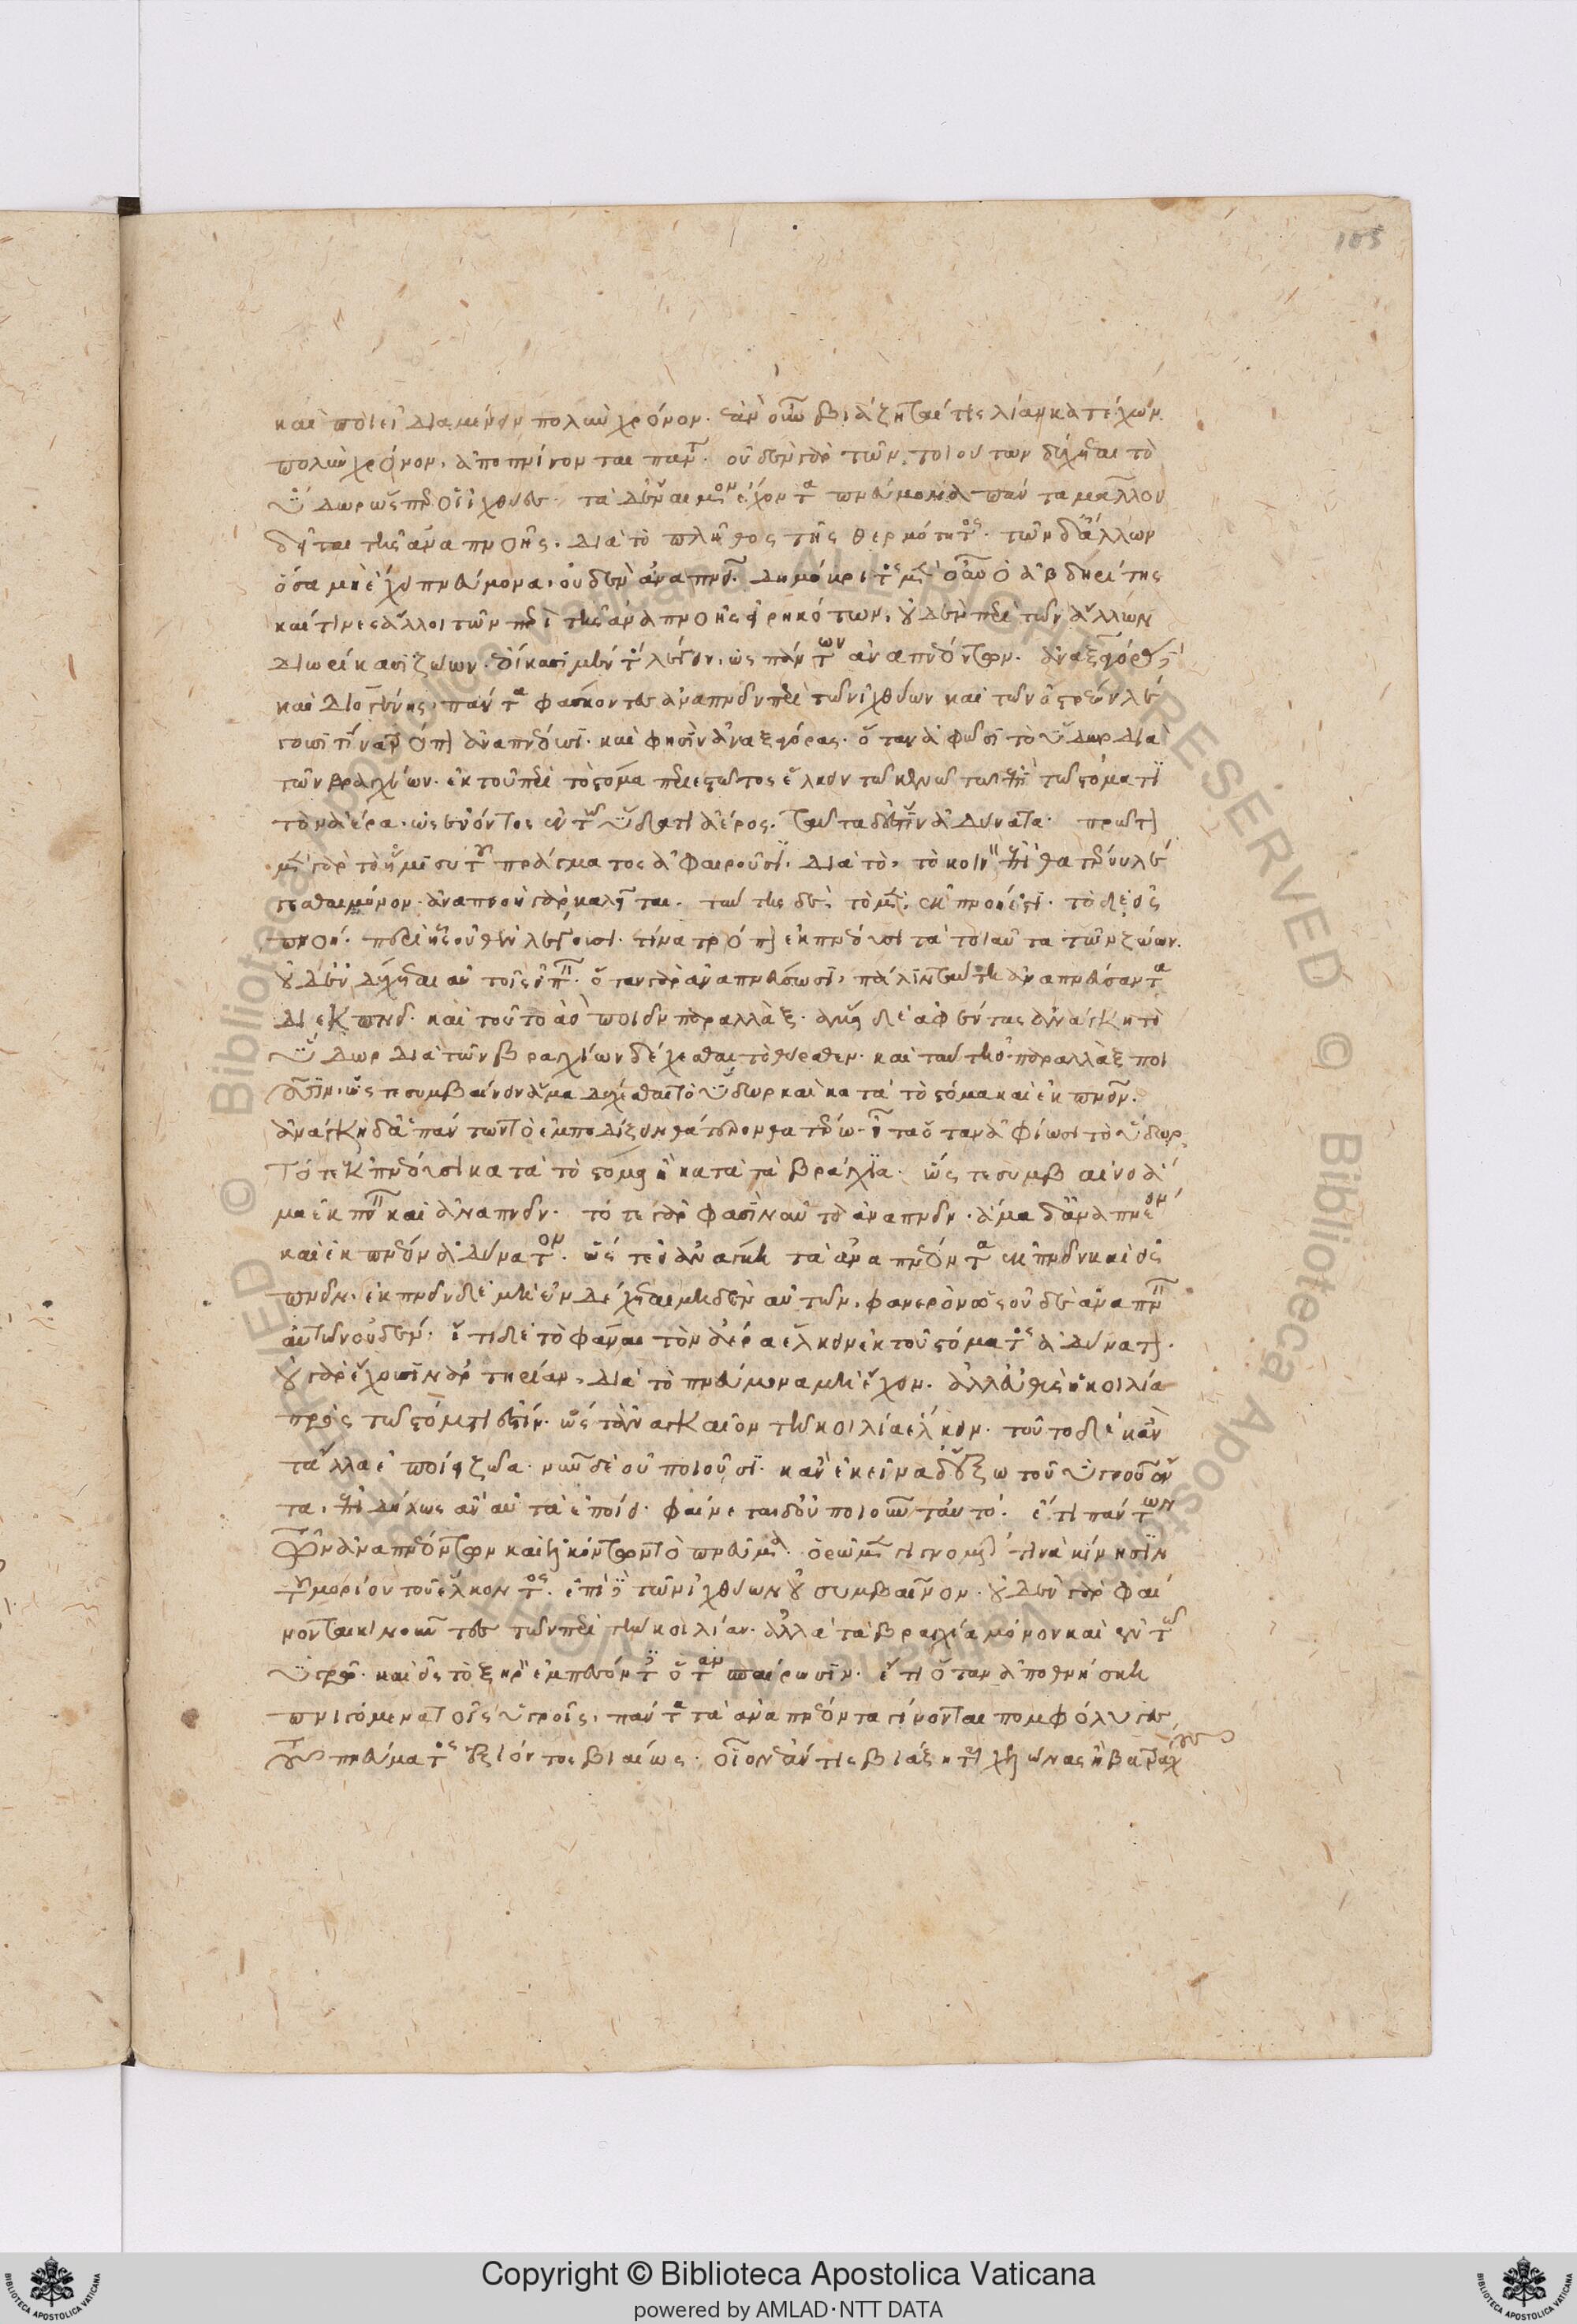 105
καὶ ποιεῖ διαμένειν πολὺν χρόνον. ἐὰν οὖν βιάζηταί τις λίαν κατέχων
πολὺν χρόνον, ἀποπνίγονται πάντα. οὐδὲν γὰρ τῶν τοιούτων δέχεται τὸ
ὕδωρ ὥσπερ οἱ ἰχθύες. τὰ δ' ἔναιμα μὲν ἔχοντα πνεύμονα πάντα μᾶλλον
δεῖται τῆς ἀναπνοῆς. διὰ τὸ πλῆθος τῆς θερμότητος. τῶν δ' ἄλλων
ὅσα μὴ ἔχει πνεύμονα, οὐδὲν ἀναπνεῖ. Δημόκριτος μὲν οὖν ὁ ἀβδηρίτης
καί τινες ἄλλοι τῶν περὶ τῆς ἀναπνοῆς εἰρηκότων, οὐδὲν περὶ τῶν ἄλλων
διωρίκασι ζώων. ἐοίκασι μέντοι λέγειν, ὡς πάντων ἀναπνεόντων. ἀναξαγόρας
καὶ Διογένης, πάντα φάσκοντες ἀναπνεῖν περὶ τῶν ἰχθύων καὶ τῶν ὀστρέων λέ
γουσι τίνα τρόπον ἀναπνέουσι. καὶ φησὶν ἀναξαγόρας. ὅταν ἀφῶσι τὸ ὕδωρ διὰ
τῶν βραγχίων. ἐκ τοῦ περὶ τὸ στόμα περιεστῶτος ἕλκειν τῷ κενῷ τῷ ἐν τῷ στόματι
τὸν ἀέρα. ὡς ἐνόντος ἐν τῷ ὕδατι ἀέρος. ταῦτα δ' ἐστὶν ἀδύνατα. πρῶτον
μὲν γὰρ τὸ ἥμισυ τοῦ πράγματος ἀφαιροῦσι. διὰ τὸ, τὸ κοινὸν ἐπὶ θατέρου λέ
γεσθαι μόνον. ἀναπνοὴ γὰρ καλεῖται. ταύτης δὲ, τὸ μὲν, ἐκπνοή ἐστι. τὸ δ' εἰσ
πνοή. περὶ ἧς οὐθὲν λέγουσι. τίνα τρόπον ἐκπνέουσι τὰ τοιαῦτα τῶν ζώων.
οὐδ' ἐνδέχεται αὐτοῖς εἰπεῖν. ὅταν γὰρ ἀναπνεύσωσι, πάλιν ταύτῃ ἀναπνεύσαντα
δεῖ ἐκπνεῖν. καὶ τοῦτο ἀεὶ ποιεῖν παραλλάξ.
ὕδωρ διὰ τῶν βραγχίων δέχεσθαι τὸ θύραθεν. καὶ ταύτῃ παραλλὰξ ποι
οῦσιν. ὥστε συμβαίνειν ἅμα δέχεσθαι τὸ ὕδωρ καὶ κατὰ τὸ στόμα καὶ ἐκπνεῖν.
ἀνάγκη δ' ἀπαντῶντ' ἐμποδίζειν θάτερον θατέρῳ. εἶτα ὅταν ἀφίωσι τὸ ὕδωρ,
τότε ἐκπνέουσι κατὰ τὸ στόμα ἢ κατὰ τὰ βράγχια. ὥστε συμβαίνει ἅ
μα ἐκπνεῖν καὶ ἀναπνεῖν. τότε γὰρ φασὶν αὐτὸ ἀναπνεῖν. ἅμα δ' ἀναπνεῖν
καὶ ἐκπνεῖν ἀδύνατον. ὥστε εἰ ἀνάγκη τὰ ἀναπνέοντα ἐκπνεῖν καὶ εἰσ
πνεῖν. ἐκπνεῖν δὲ μὴ ἐνδέχεται μηδὲν αὐτῶν. φανερὸν ὡς οὐδὲ ἀναπνεῖ
αὐτῶν οὐδέν. ἔτι δὲ τὸ φάναι τὸν ἀέρα ἕλκειν ἐκ τοῦ στόματος ἀδύνατον.
οὐ γὰρ ἔχουσιν ἀρτηρίαν, διὰ τὸ πνεύμονα μὴ ἔχειν. ἀλλ' εὐθὺς ἡ κοιλία
πρὸς τῷ στόματι ἐστίν. ὥστ' ἀναγκαῖον τῇ κοιλίᾳ ἕλκειν. τοῦτο δὲ κἂν
τἆλλα ἐποίει ζῶα. νῦν δὲ οὐ ποιοῦσι. κἂν ἐκεῖνα δ' ἔξω τοῦ ὑγροῦ ὄν
τα, ἐπιδήλως ἂν αὐτὰ ἐποίει. φαίνεται δ' οὐ ποιοῦντα αὐτό. ἔτι πάντων
τῶν ἀναπνεόντων καὶ ἑλκόντων τὸ πνεῦμα. ὁρῶμεν γιγνομένην τινὰ κίνησιν
τοῦ μορίου τοῦ ἕλκοντος. ἐπὶ δὲ τῶν ἰχθύων οὐ συμβαῖνον. οὐδὲν γὰρ φαί
νονται κινοῦντες τῶν περὶ τὴν κοιλίαν. ἀλλὰ τὰ βράγχια μόνον καὶ ἐν τῷ
ὑγρῷ. καὶ εἰς τὸ ξηρὸν ἐμπεσόντες ὅταν σπαίρωσιν. ἔτι ὅταν ἀποθνήσκῃ
πνιγόμενα τοῖς ὑγροῖς, πάντα τὰ ἀναπνέοντα γίνονται πομφόλυγες
τοῦ πνεύματος ἐξιόντος βιαίως. οἷον ἐάν τις βιάζηται χελώνας ἢ βατράχους
Copyright © Biblioteca Apostolica Vaticana
powered by AMLAD·NTT DATA